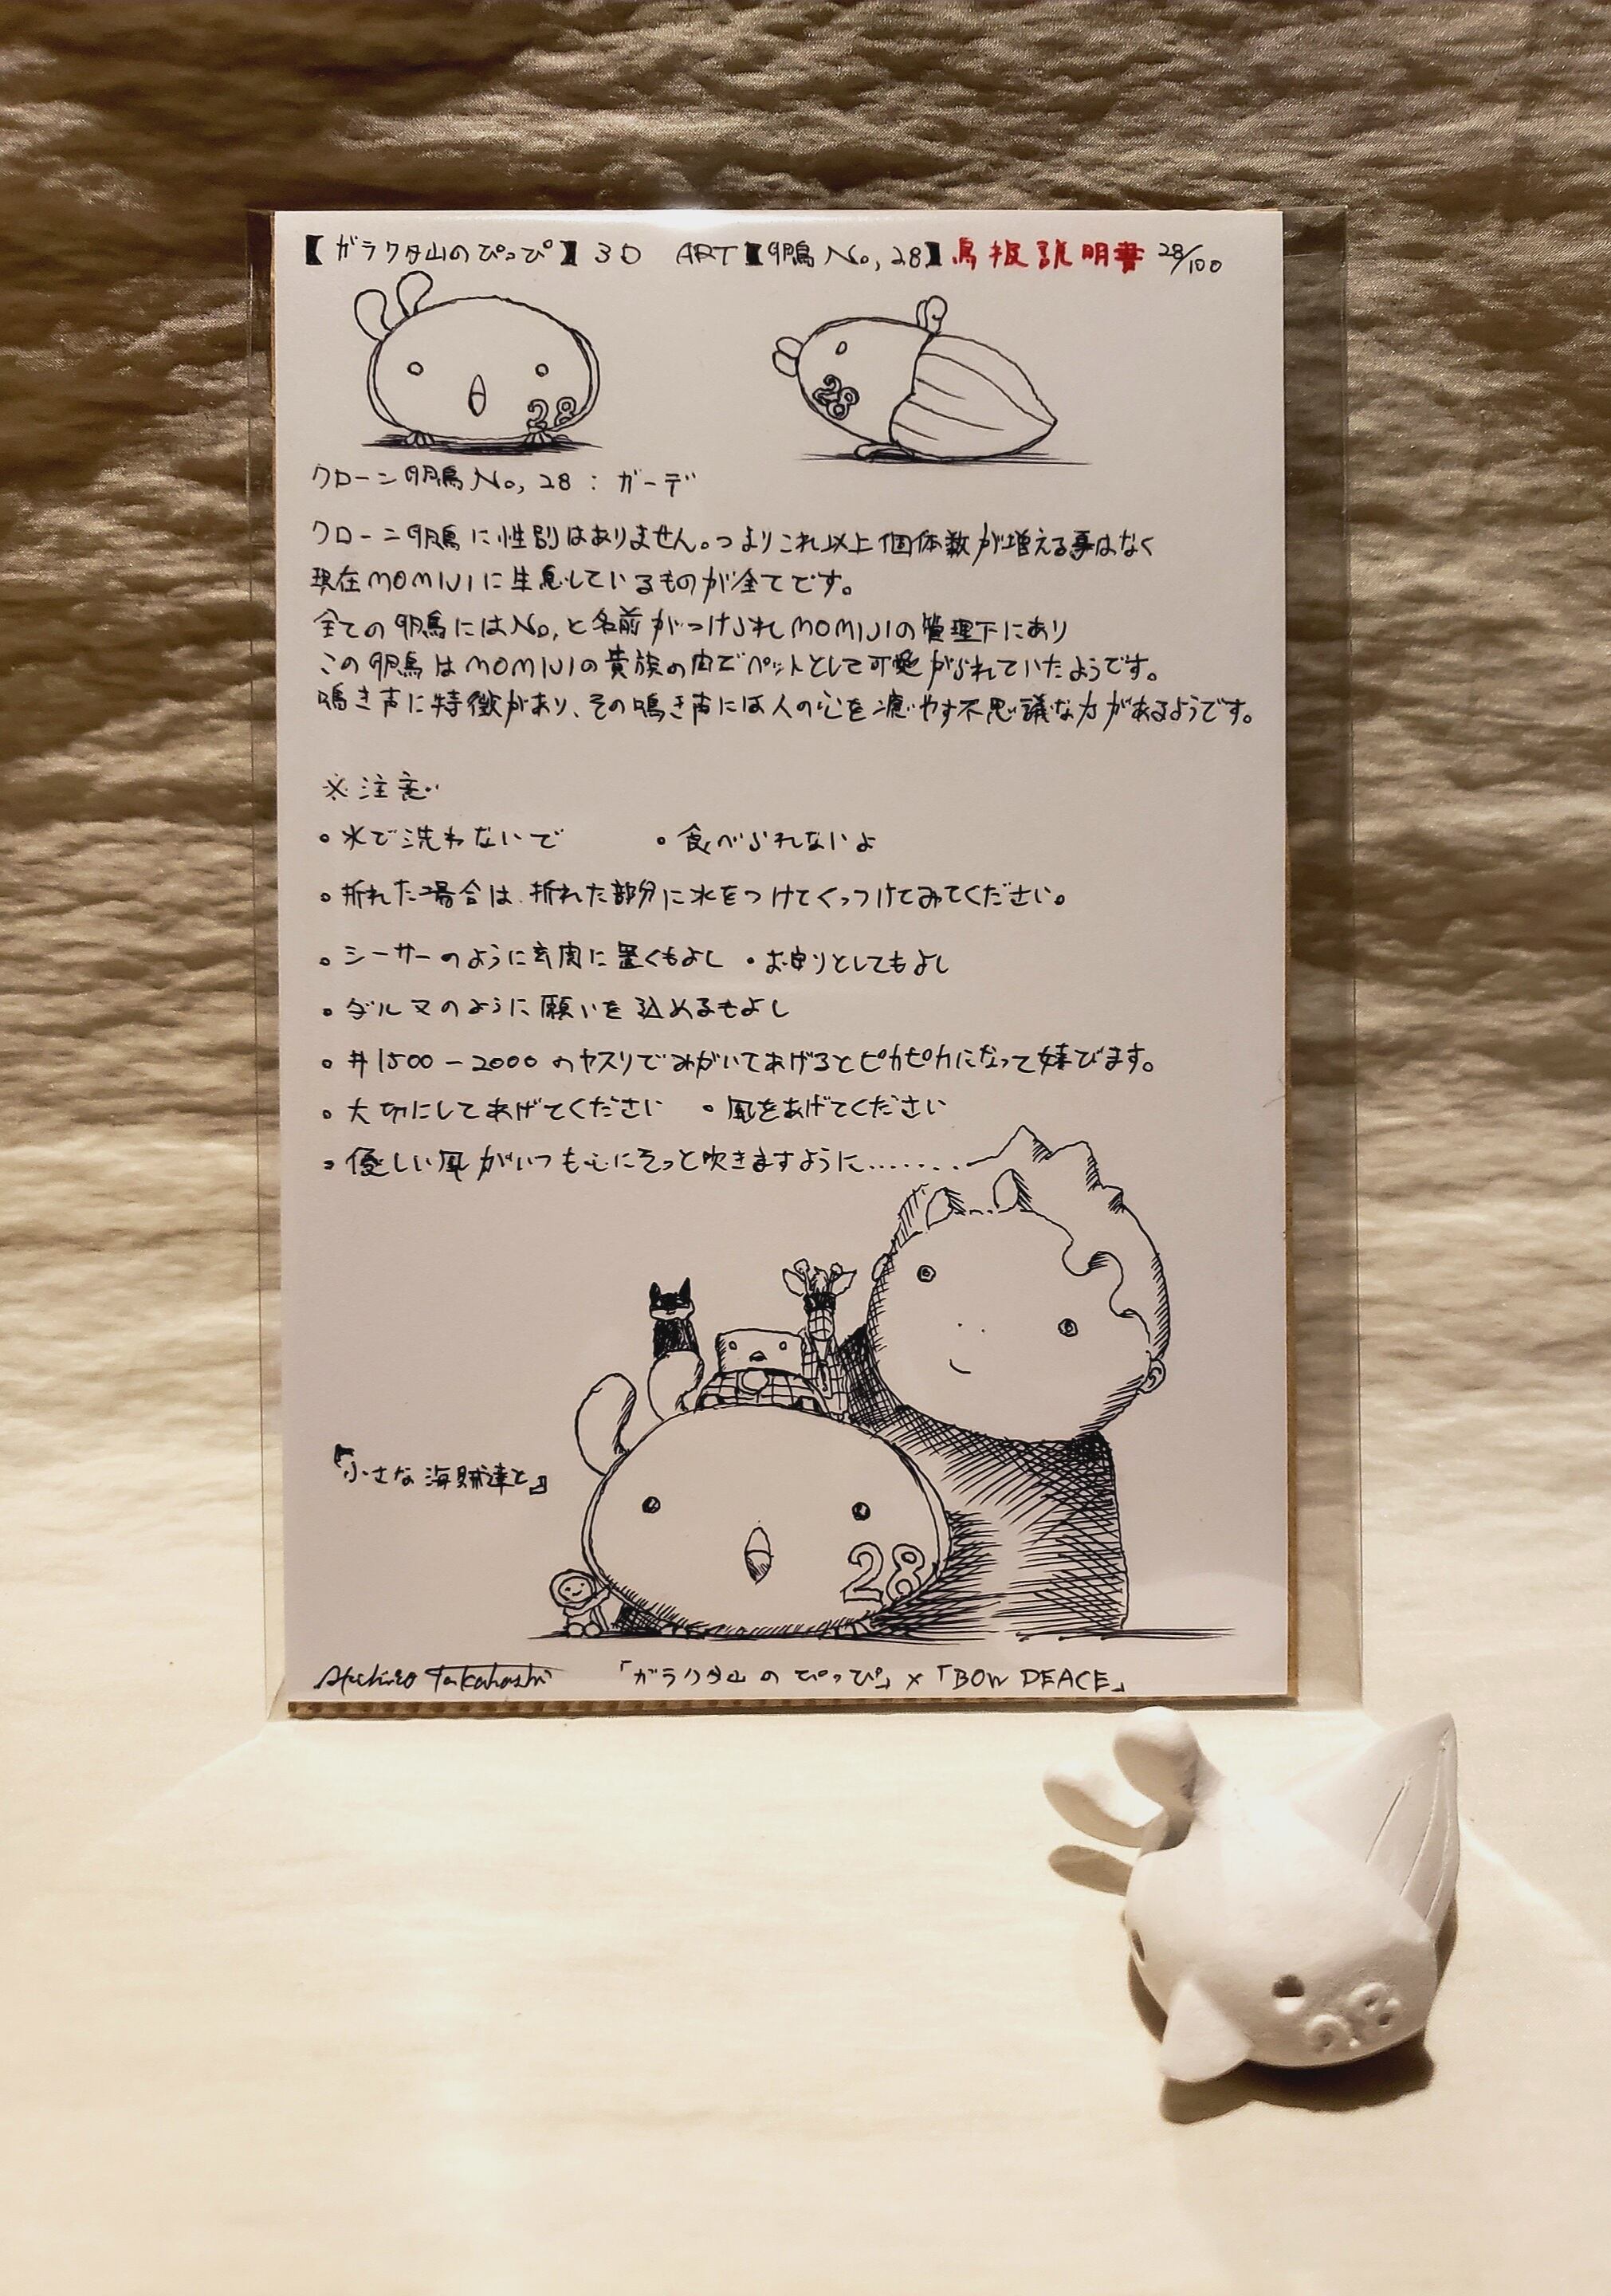 【ガラクタ山のぴっぴ】3D ART【卵鳥No,28】鳥扱説明書 28/100
28
28
クローン卵鳥No,28：ガーデ
クローン卵鳥に性別はありません。つまりこれ以上個体数が増える事はなく
現在MOMIJIに生息しているものが全てです。
全ての卵鳥にはNo,と名前がつけられMOMIJIの管理下にあり
この卵鳥はMOMIJIの貴族の内でペットとして可愛がられていたようです。
鳴き声に特徴があり、その鳴き声には人の心を癒やす不思議な力があるようです。
※注意
・水で洗わないで ・食べられないよ
・折れた場合は、折れた部分に水をつけてくっつけてみてください。
・シーサーのように玄関に置くもよし ・お守りとしてもよし
・ダルマのように願いを込めるもよし
・#1500-2000のヤスリでみがいてあげるとピカピカになって喜びます。
・大切にしてあげてください ・風をあげてください
・優しい風がいつも心にそっと吹きますように........
『小さな海賊達と』
28
Akihiro Takahashi 「ガラクタ山のぴっぴ」×「BOW PEACE」
28